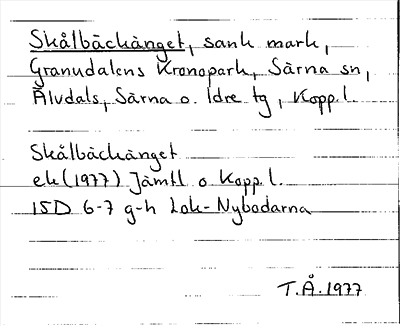 Skålbäckänget, sank mark,
Granudalens Kronopark, Särna sn,
Älvdals, Särna o. Idre tg, Kopp.l.
Skålbäckänget
ek (1977) Jämtl o Kopp.l.
15D 6-7 g-h Lok-Nybodarna
T.Å. 1977